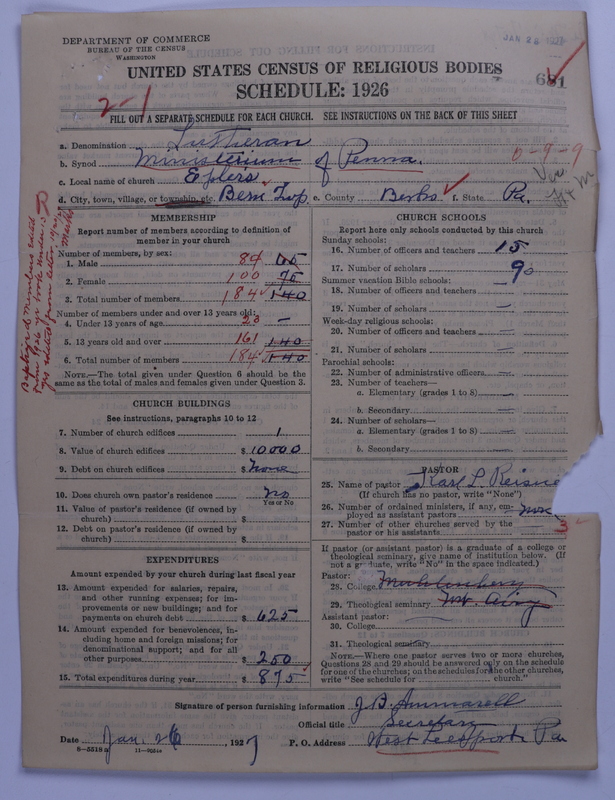 DEPARTMENT OF COMMERCE
BUREAU OF THE CENSUS
WASHINGTON
JAN 28 1927
UNITED STATES CENSUS OF RELIGIOUS BODIES
SCHEDULE: 1926
681
2-1
FILL OUT A SEPARATE SCHEDULE FOR EACH CHURCH. SEE INSTRUCTIONS ON THE BACK OF THIS SHEET
a. Denomination Lutheran
b. Synod Ministerium of Penna.
0-9-9
Ver.
c. Local name of church Eplers
d. City, town, village, or township, etc. Bern Twp e. County Berks f. State Pa.
MEMBERSHIP
Report number of members according to definition of
member in your church
Number of members, by sex:
1. Male 84 65
2. Female 100 75
3. Total number of members 184 140
Number of members under and over 13 years old:
4. Under 13 years of age 23 —
5. 13 years old and over 161 140
6. Total number of members 184 140
NOTE.—The total given under Question 6 should be the
same as the total of males and females given under Question 3.
CHURCH BUILDINGS
See instructions, paragraphs 10 to 12
7. Number of church edifices 1
8. Value of church edifices $10000
9. Debt on church edifices $None
10. Does church own pastor's residence No
Yes or No
11. Value of pastor's residence (if owned by
church) $
12. Debt on pastor's residence (if owned by
church) $
EXPENDITURES
Amount expended by your church during last fiscal year
13. Amount expended for salaries, repairs,
and other running expenses; for im-
provements or new buildings; and for
payments on church debt $625
14. Amount expended for benevolences, in-
cluding home and foreign missions; for
denominational support; and for all
other purposes $250
15. Total expenditures during year $875
CHURCH SCHOOLS
Report here only schools conducted by this church
Sunday schools:
16. Number of officers and teachers 15
17. Number of scholars 90
Summer vacation Bible schools:
18. Number of officers and teachers —
19. Number of scholars —
Week-day religious schools:
20. Number of officers and teachers —
21. Number of scholars —
Parochial schools:
22. Number of administrative officers —
23. Number of teachers—
a. Elementary (grades 1 to 8) —
b. Secondary —
24. Number of scholars—
a. Elementary (grades 1 to 8) —
b. Secondary —
PASTOR
25. Name of pastor Karl L. Reisne
(If church has no pastor, write "None")
26. Number of ordained ministers, if any, em-
ployed as assistant pastors
27. Number of other churches served by the
pastor or his assistants 3
If pastor (or assistant pastor) is a graduate of a college or
theological seminary, give name of institution below. (If
not a graduate, write "No" in the space indicated.)
Pastor:
28. College Muehlenberg
29. Theological seminary Mt. Airy
Assistant pastor:
30. College
31. Theological seminary
NOTE.—Where one pastor serves two or more churches,
Questions 28 and 29 should be answered only on the schedule
for one of the churches; on the schedules for the other churches,
write "See schedule for church."
Signature of person furnishing information J. B. Ammarell
Official title Secretary
Date Jan. 26, 1927 P. O. Address West Leesport Pa
8-5518a 11-9554